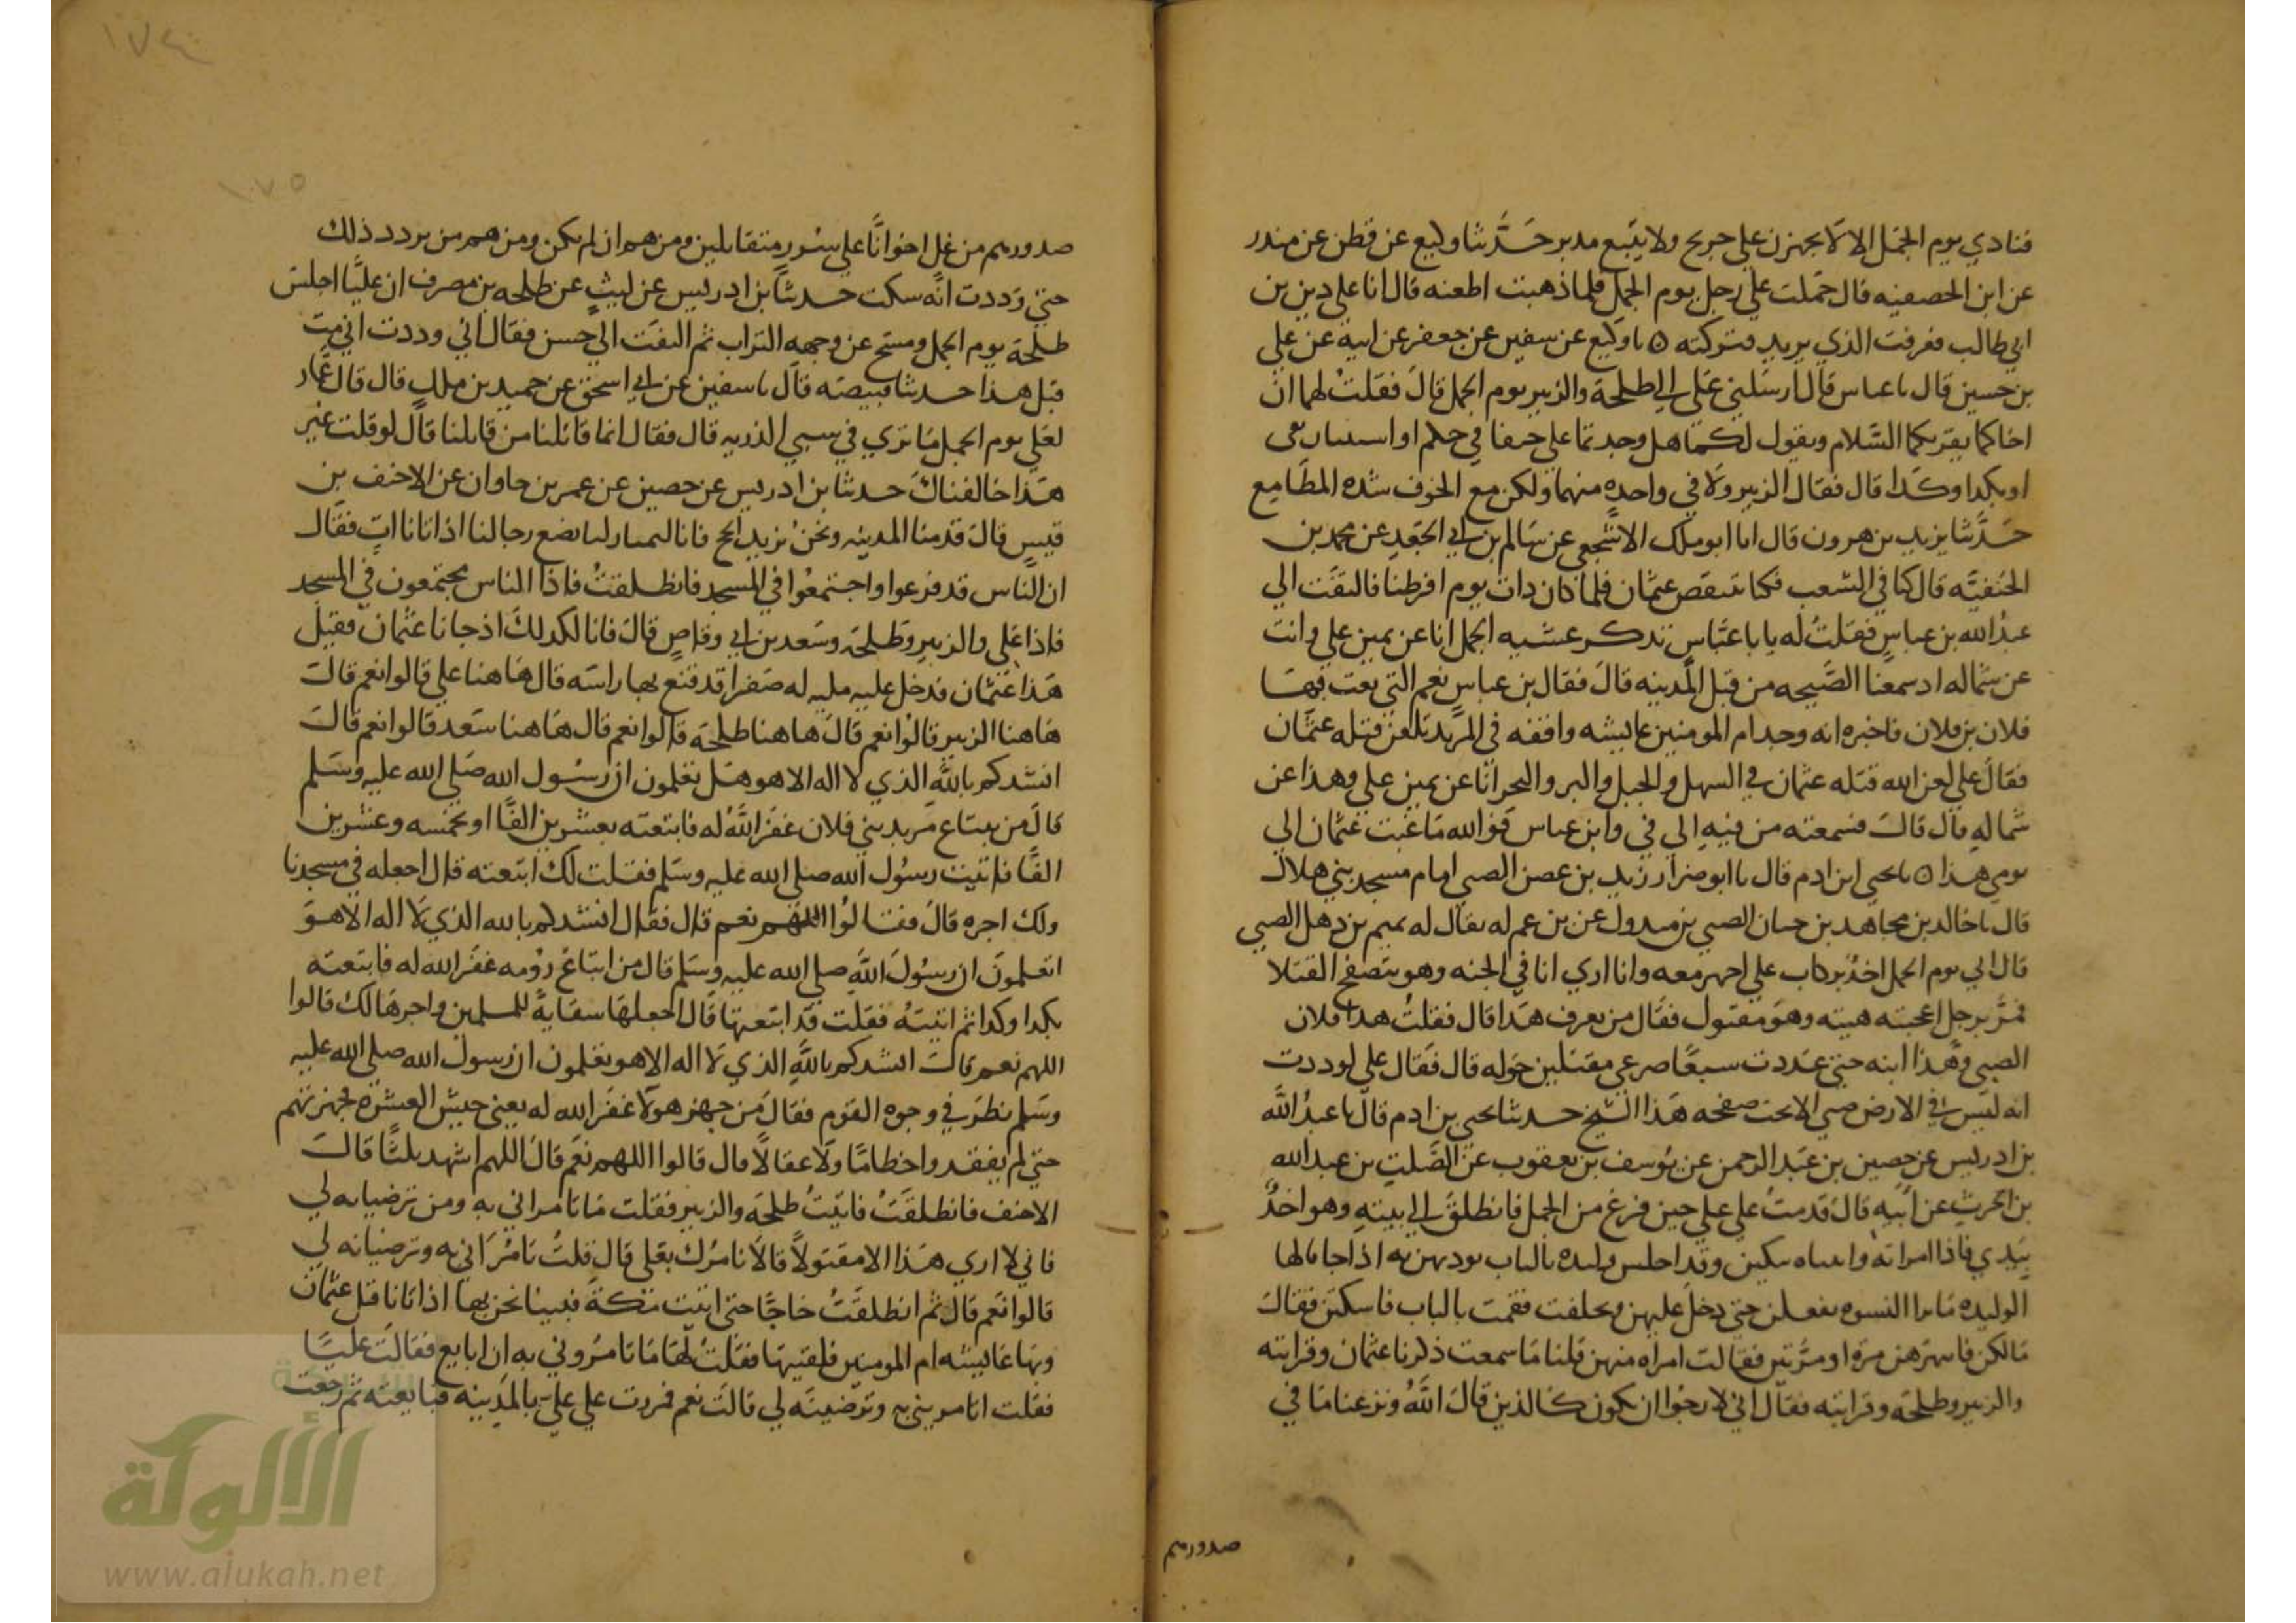 فنادي يوم الجمل الا لا يجهزن علي جريح ولا يتبع مدبر حدثنا وكيع عن فطن عن منذر
عن ابن الحصفيه قال حملت علي رجل يوم الجمل فلما ذهبت اطعنه قال انا علي دين بن
ابي طالب فعرفت الذي يريد فتركته ٥ نا وكيع عن سفين عن جعفر عن ابيه عن علي
بن حسين قال نا عباس قال ارسلني علي الي طلحة والزبير يوم الجمل قال فقلت لهما ان
اخاكما يقريكما السلام ويقول لكما هل وجدتما علي حيفا في حكم او استيثار في
او بكدا وكدا قال فقال الزبير ولا في واحده منهما ولكن مع الخوف شده المطامع
حدثنا يزيد بن هرون قال انا ابو ملك الاشجعي عن سالم بن ابي الجعد عن محمد بن
الحنفيه قال كنا في الشعب فكنا نتنقص عثمان فلما كان دات يوم افرطنا فالتفت الي
عبد الله بن عباس فقلت له يا با عباس تدكر عشيه الجمل انا عن يمين علي وانت
عن شماله اد سمعنا الصيحه من قبل المدينه قال فقال بن عباس نعم التي بعث بها
فلان بن فلان فاخبره انه وجد ام المومنين عايشه واقفه في المربد تلعن قتله عثمان
فقال علي لعن الله قتله عثمان في السهل والجبل والبر والبحر انا عن يمين علي وهذا عن
شماله قال قال فسمعته من فيه الي في وابن عباس فوالله ما عبت عثمان الي
يومي هذا ٥ نا يحيي ابن ادم قال نا ابو ضرار زيد بن عصن الضبي امام مسجد بني هلال
قال نا خالد بن مجاهد بن حسان الضبي بن مبدول عن بن عم له يقال له تميم بن ذهل الضبي
قال اني يوم الجمل اخذ بركاب علي اجهر معه وانا اري انا في الجنه وهو يتصفح القتلا
فمر برجل اعجبته هيته وهو مقتول فقال من يعرف هذا قال فقلت هدا فلان
الضبي وهذا ابنه حتي عددت سبعا صرعي مقتلين حوله قال فقال علي لوددت
انه ليس في الارض ضبي الا تحت صفحه هذا الشيخ حدثنا يحيي بن ادم قال نا عبد الله
بن ادريس عن حصين بن عبد الرحمن عن يوسف بن يعقوب عن الصلت بن عبد الله
بن الحرث عن ابيه قال قدمت علي علي حين فرغ من الجمل فانطلق الي بيته وهو اخذ
بيدي فاذا امراته وابنتاه يبكين وقد اجلس وليده بالباب تودنهن به اذا جا فالها
الوليده ما ترا النسوه يفعلن حتي دخل عليهن وتخلفت فقمت بالباب فاسكتن فقال
مالكن فانتهرهن مره او مرتين فقالت امراه منهن قلنا ما سمعت ذكرنا عثمان وقرابته
والزبير وطلحه وقرابته فقال اني لارجوا ان نكون كالذين قال الله ونزعنا ما في
صدورهم
صدورهم من غل اخوانا علي سرر متقابلين ومن هم ان لم نكن ومن هم من يردد ذلك
حتي وددت انه سكت حدثنا بن ادريس عن ليث عن طلحه بن مصرف ان عليا اجلس
طلحة يوم الجمل ومسح عن وجهه التراب ثم التفت الي حسن فقال اني وددت اني مت
قبل هذا حدثنا قبيصه قال نا سفين عن ابي اسحق عن حميد بن ملك قال قال عمار
لعلي يوم الجمل ما تري في سبي الذريه قال فقال انما قاتلنا من قاتلنا قال لو قلت غير
هذا خالفناك حدثنا بن ادريس عن حصين عن عمر بن جاوان عن الاحنف بن
قيس قال قدمنا المدينه ونحن نريد الحج فانا لبمنازلنا نضع رحالنا اذ اتانا ات فقال
ان الناس قد فزعوا واجتمعوا في المسجد فانطلقت فاذا الناس مجتمعون في المسجد
فاذا علي والزبير وطلحه وسعد بن ابي وقاص قال فانا لكدلك اذ جانا عثمان فقيل
هذا عثمان فدخل عليه مليه له صفرا قد قنع بها راسه قال هاهنا علي قالوا نعم قال
هاهنا الزبير قالوا نعم قال هاهنا طلحة قالوا نعم قال هاهنا سعد قالوا نعم قال
انشدكم بالله الذي لا اله الا هو هل تعلمون ان رسول الله صلي الله عليه وسلم
قال من يبتاع مربد بني فلان غفر الله له فابتعته بعشرين الفا او بخمسه وعشرين
الفا فاتيت رسول الله صلي الله عليه وسلم فقلت لك ابتعته قال اجعله في مسجدنا
ولك اجره قال فقالوا اللهم نعم قال فقال انشدكم بالله الذي لا اله الا هو
اتعلمون ان رسول الله صلي الله عليه وسلم قال من ابتاع رومه غفر الله له فابتعته
بكدا وكدا ثم اتيته فقلت قد ابتعتها قال اجعلها سقاية للمسلمين واجرها لك قالوا
اللهم نعم قال انشدكم بالله الذي لا اله الا هو تعلمون ان رسول الله صلي الله عليه
وسلم نظر في وجوه القوم فقال من جهز هولا غفر الله له يعني جيش العسره فجهزتهم
حتي لم يفقدوا خطاما ولا عقالا قال قالوا اللهم نعم قال اللهم اشهد ثلثا قال
الاحنف فانطلقت فاتيت طلحه والزبير فقلت ما تامراني به ومن ترضيانه لي
فاني لا اري هذا الا مقتولا قالا نامرك بعلي قال قلت تامراني به وترضيانه لي
قالوا نعم قال ثم انطلقت حاجا حتي اتيت مكة فبينا نحن بها اذ اتانا قتل عثمان
وبها عايشه ام المومنين فلقيتها فقلت لها ما تامروني به ان ابايع فقالت عليا
فقلت اتامريني به وترضينه لي قالت نعم فمررت علي علي بالمدينه فبايعته ثم رجعت
١٧٤
١٧٥
الألوكة
www.alukah.net